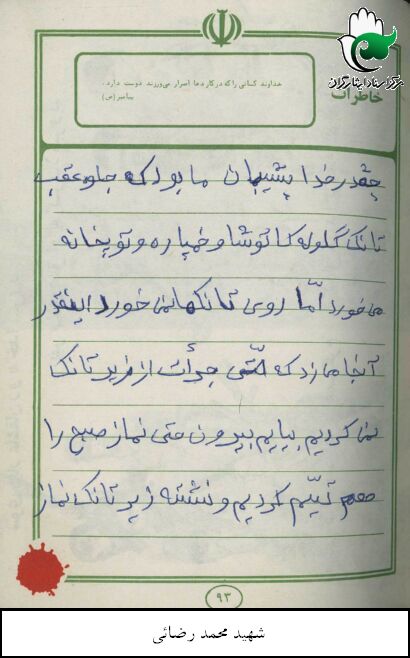 مرکز اسناد ایثارگران
خاطرات
خداوند کسانی را که در کارها اصرار می‌ورزند دوست دارد.
پیامبر (ص)
چقدر خدا پشیبان ما بود که جلو عقب
تانک گلوله کاتوشا و خمپاره و توپخانه
می خورد امّا روی تانکها نمی خورد اینقدر
آنجا می زد که حتّی جرأت از زیر تانک
نمی کردیم بیایم بیرون حتی نماز صبح را
هم تیمّم کردیم و نشسته زیر تانک نماز
۹۳
شهید محمد رضائی